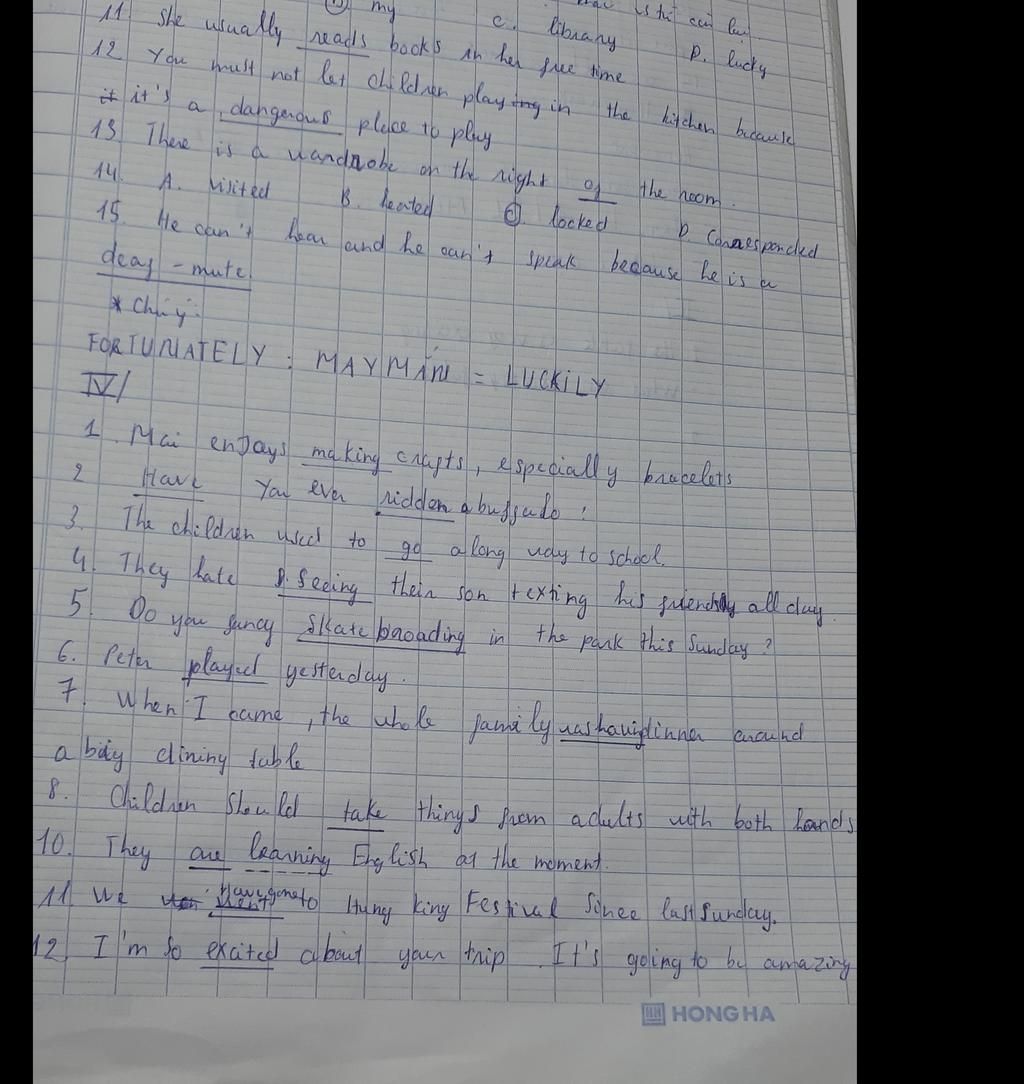 my C. library D. lucky
11 She usually reads books in her free time
12 You must not let children playing in the kitchen because
it it's a dangerous place to play
13 There is a wardrobe on the right of the room.
14. A. visited B. heated C locked D. Corresponded
15. He can't hear and he can't speak because he is a
deaf - mute.
* Chú ý:
FORTUNATELY : MAY MẮN = LUCKILY
IV/
1. Mai enjoys making crafts, especially bracelets
2 Have You ever ridden a buffado ?
3. The children used to go a long way to school.
4. They hate D. Seeing their son texting his friends all day.
5. Do you fancy Skate broading in the park this Sunday ?
6. Peter played yesterday.
7. When I came, the whole family was having dinner around
a big dining table
8. Children should take things from adults with both hands
10. They are learning English at the moment.
11. We went Have gone to Hung King Festival Since last Sunday.
12. I'm so excited about your trip. It's going to be amazing
HONG HA